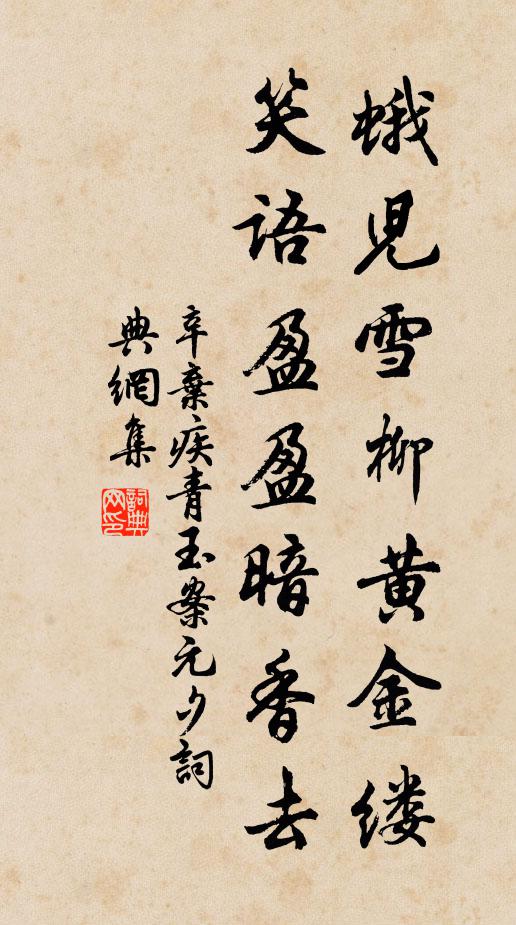 蛾児雪柳黄金缕
笑语盈盈暗香去
辛棄疾青玉案元夕詞
典網集
詞典网印